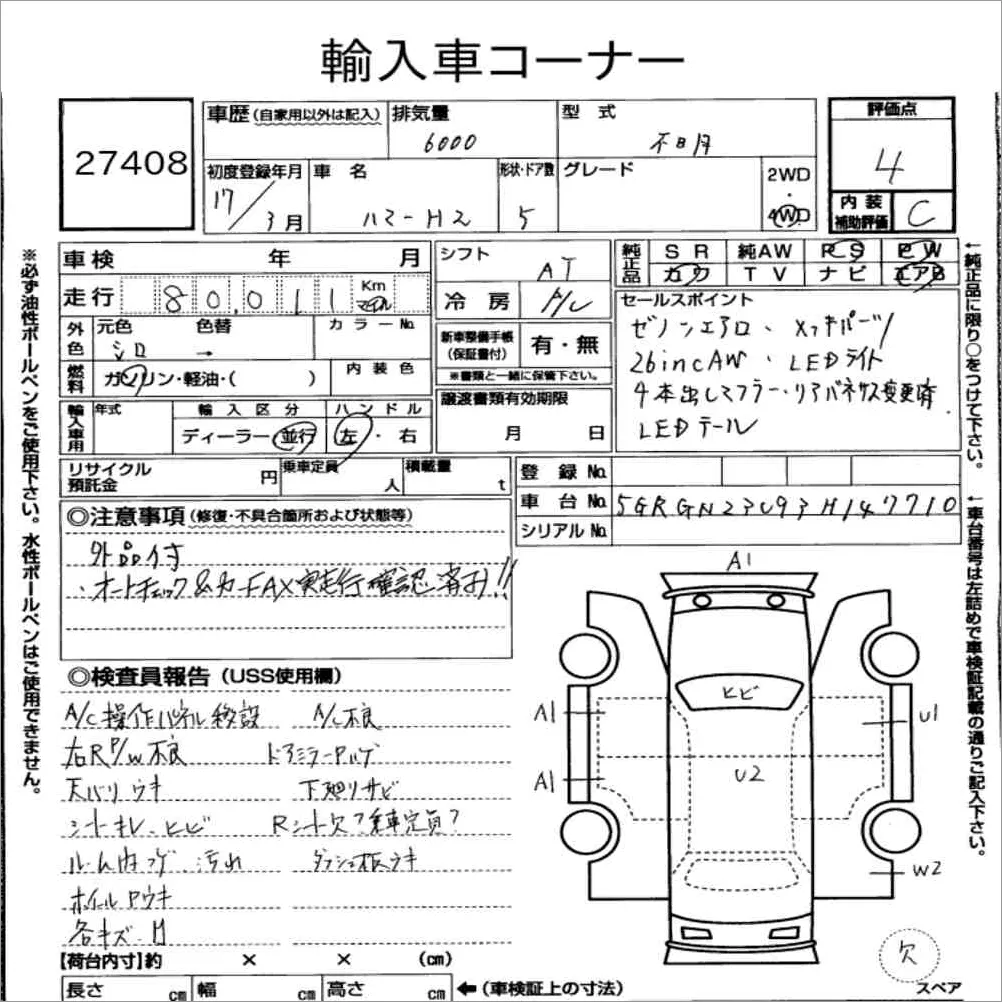 輸入車コーナー
27408
車歴 (自家用以外は記入) 排気量 型式 評価点
6000 不明 4
初度登録年月 車名 形状・ドア数 グレード 2WD ・ 4WD
17/3月 ハマーH2 5
内装補助評価 C
車検 年 月 シフト AT 純正品 SR 純AW PS PW
カワ TV ナビ エアB
走行 80,011 Km マイル 冷房 A/C
セールスポイント
ゼノンエアロ、メッキパーツ/
26incAW、LEDライト
4本出しマフラー・リアバネサス変更済
LEDテール
外色 元色 色替 カラーNo.
シロ →
新車整備手帳(保証書付) 有・無
※書類と一緒に保管下さい。
燃料 ガソリン・軽油・( ) 内装色
譲渡書類有効期限
月 日
輸入車用 年式 輸入区分 ハンドル
ディーラー・並行 左・右
リサイクル預託金 円 乗車定員 人 積載量 t
登録No.
車台No. 5GRGN23U93H147710
シリアルNo.
◎注意事項 (修復・不具合箇所および状態等)
外品付
・オートチェック&カーFAX実走行確認済み!!
◎検査員報告 (USS使用欄)
A/C操作パネル移設 A/C不良
右RP/W不良 ドアミラーアルゲ
天バリウキ 下廻りサビ
シートキレ、ヒビ Rシート欠?乗車定員?
ルーム内コゲ、汚れ ダッシュ板ウキ
ホイルアウキ
各キズ・凹
【荷台内寸】約 × × (cm)
長さ cm 幅 cm 高さ cm ←(車検証上の寸法)
A1
ヒビ
A1
U1
A1
U2
W2
欠
スペア
※必ず油性ボールペンをご使用下さい。水性ボールペンはご使用できません。
←純正品に限り○をつけて下さい。
←車台番号は左詰めで車検証記載の通りご記入下さい。